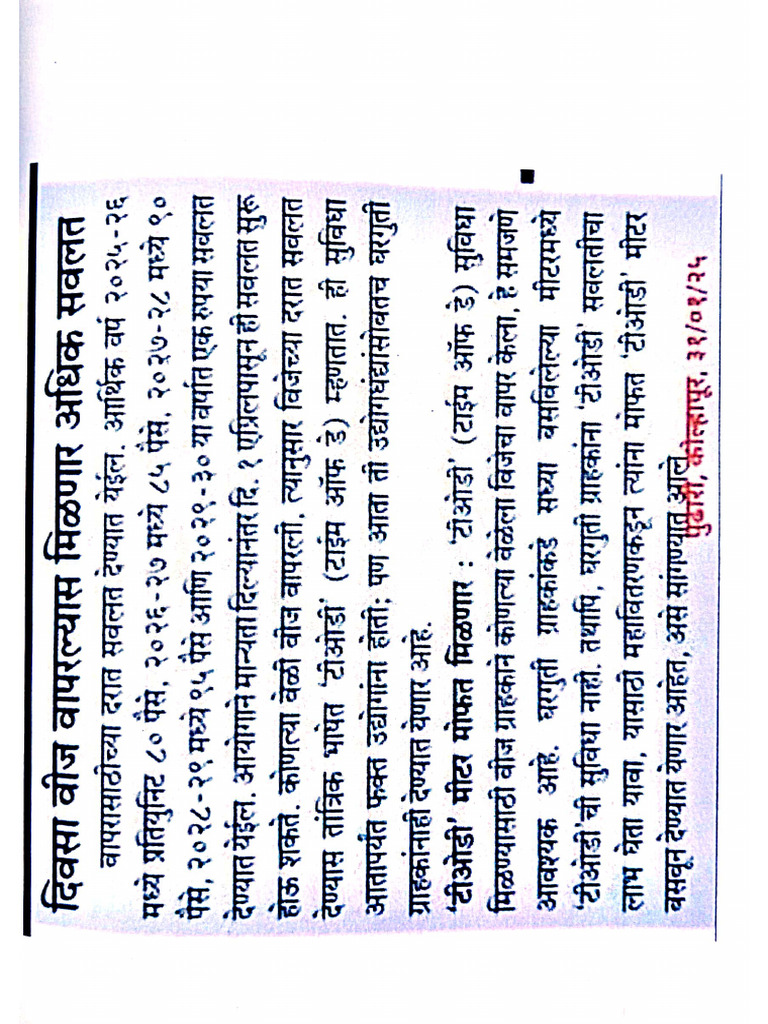 दिवसा वीज वापरल्यास मिळणार अधिक सवलत
वापरासाठीच्या दरात सवलत देण्यात येईल. आर्थिक वर्ष २०२५-२६
मध्ये प्रतियुनिट ८० पैसे, २०२६-२७ मध्ये ८५ पैसे, २०२७-२८ मध्ये ९०
पैसे, २०२८-२९ मध्ये ९५ पैसे आणि २०२९-३० या वर्षात एक रुपया सवलत
देण्यात येईल. आयोगाने मान्यता दिल्यानंतर दि. १ एप्रिलपासून ही सवलत सुरू
होऊ शकते. कोणत्या वेळी वीज वापरली, त्यानुसार विजेच्या दरात सवलत
देण्यास तांत्रिक भाषेत 'टीओडी' (टाईम ऑफ डे) म्हणतात. ही सुविधा
आतापर्यंत फक्त उद्योगांना होती; पण आता ती उद्योगधंद्यांसोबतच घरगुती
ग्राहकांनाही देण्यात येणार आहे.
'टीओडी' मीटर मोफत मिळणार : 'टीओडी' (टाईम ऑफ डे) सुविधा
मिळण्यासाठी वीज ग्राहकाने कोणत्या वेळेला विजेचा वापर केला, हे समजणे
आवश्यक आहे. घरगुती ग्राहकांकडे सध्या बसविलेल्या मीटरमध्ये
'टीओडी'ची सुविधा नाही. तथापि, घरगुती ग्राहकांना 'टीओडी' सवलतीचा
लाभ घेता यावा, यासाठी महावितरणकडून त्यांना मोफत 'टीओडी' मीटर
बसवून देण्यात येणार आहेत, असे सांगण्यात आले
पुढारी, कोल्हापूर, ३१/०१/२५